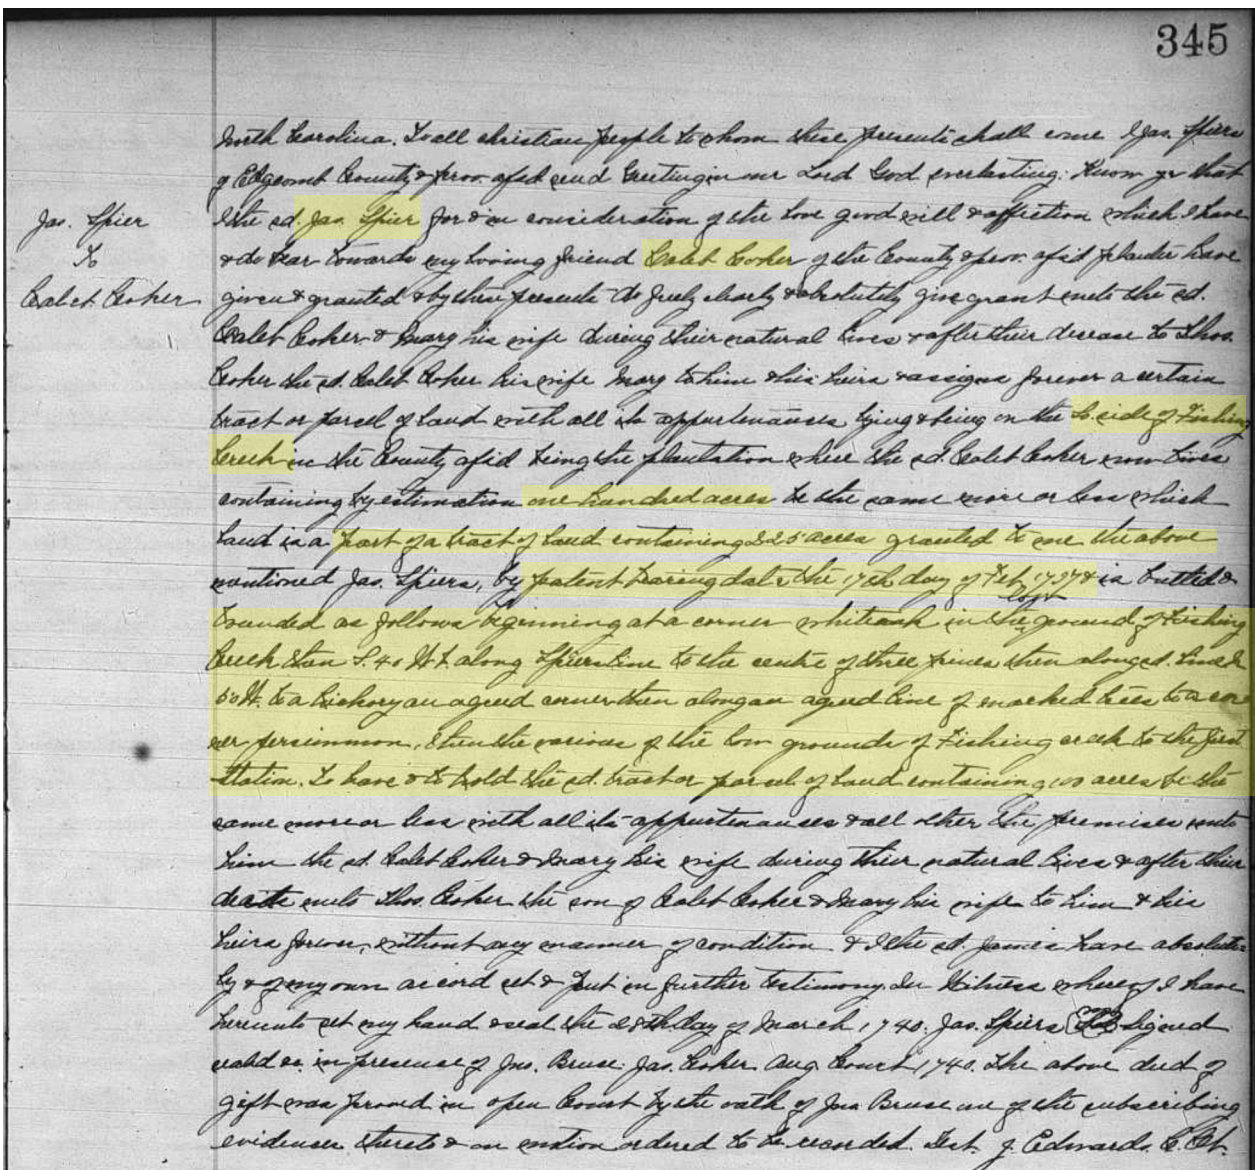 345
North Carolina. To all christian people to whom these presents shall come I Jas. Spiers
of Edgecomb County & prov. afsd send Greeting in our Lord God everlasting: Know ye that
Jas. Spier
To
Calet Coker
I the sd. Jas. Spier for & in consideration of the love good will & affection which I have
& do bear towards my loving friend Calet Coker of the County & prov. afsd planter have
given & granted & by these presents do freely clearly & absolutely give grant unto the sd.
Calet Coker & Mary his wife during their natural lives & after their decease to Thos.
Coker the sd. Calet Coker his wife Mary to him & his heirs & assigns forever a certain
tract or parcel of land with all its appurtenances lying & being on the So. side of Fishing
Creek in the County afsd being the plantation where the sd. Calet Coker now lives
containing by estimation one hundred acres be the same more or less which
land is a part of a tract of land containing 225 acres granted to me the above
mentioned Jas. Spiers, by patent bearing date the 17th day of Feb. 1737 & is butted &
bounded as follows beginning at a corner white oak in the low ground of Fishing
Creek then S. 40 W. along Spiers line to the centre of three pines then along sd. line
50 W. to a hickory an agreed corner then along an agreed line of marked trees to a cor
ner persimmon, then the various of the low grounds of Fishing creek to the first
station. To have & to hold the sd. tract or parcel of land containing 100 acres be the
same more or less with all its appurtenances & all other the premises unto
him the sd. Calet Coker & Mary his wife during their natural lives & after their
death unto Thos. Coker the son of Calet Coker & Mary his wife to him & his
heirs forever, without any manner of condition & I the sd. James have absolute-
ly & of my own accord set & put in further testimony. In Witness whereof I have
hereunto set my hand & seal the day of March 1740. Jas. Spiers Signed
seald &c in presence of Jno. Bruse. Jas. Coker. Aug. Court 1740. The above deed of
gift was proved in open Court by the oath of Jno Bruse one of the subscribing
evidences thereto & on motion ordered to be recorded. Test. J. Edwards. C. Ct.